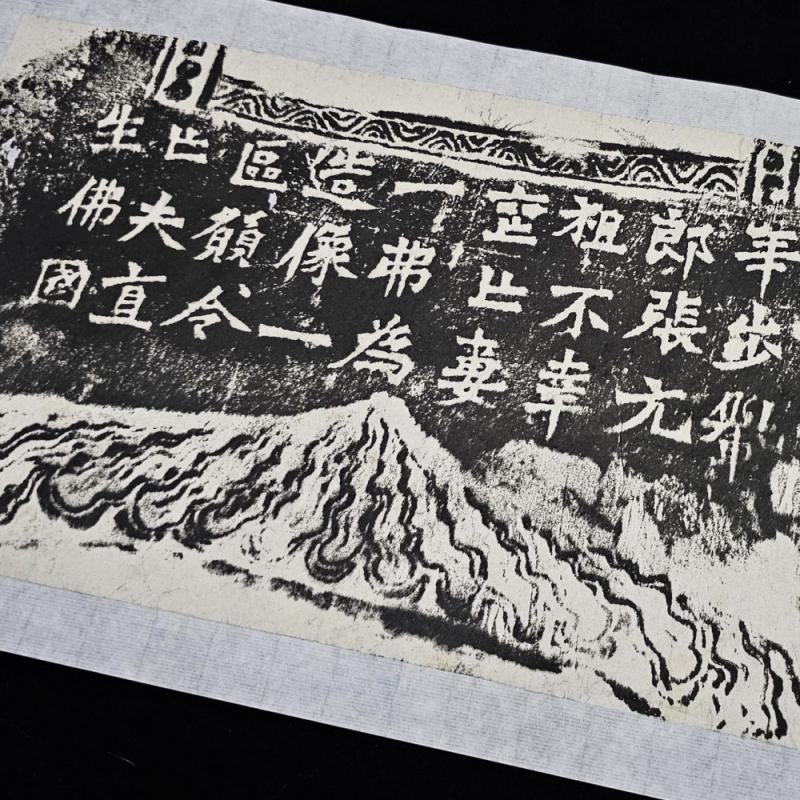 年步轝
郎張元
祖不幸
喪亡妻
一弗為
造像一
區願令
亡夫直
生佛國